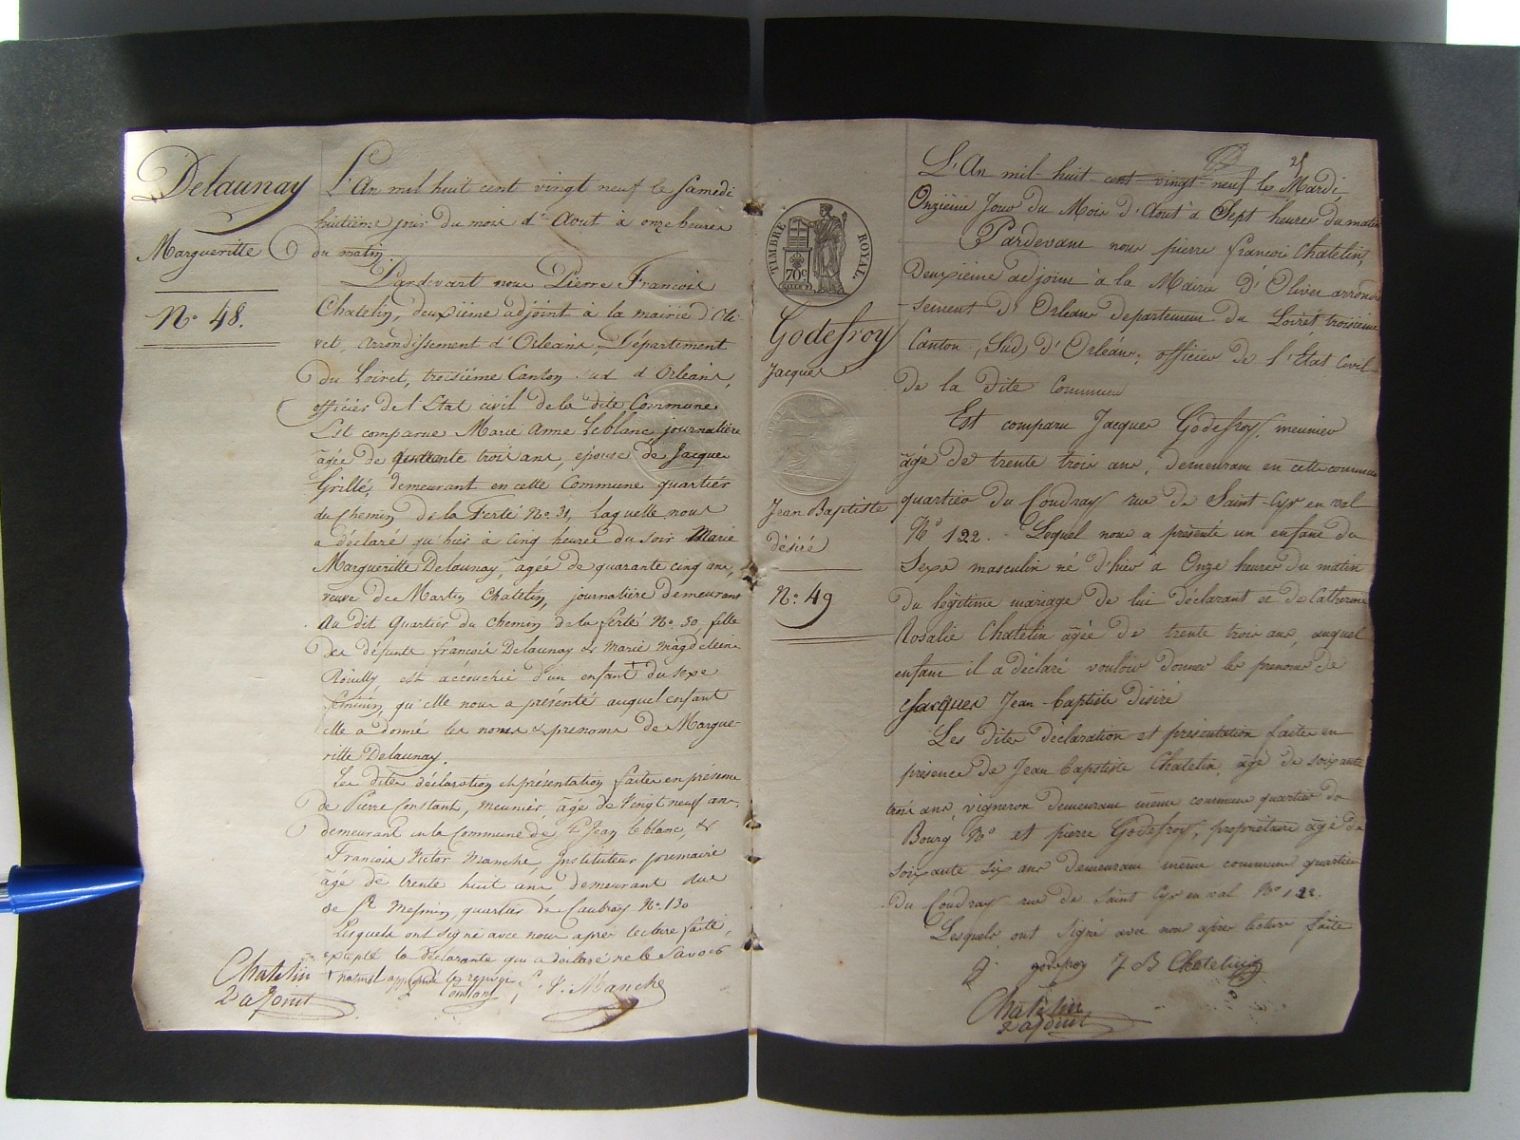 Delaunay
Margueritte
No. 48.
L'An mil huit cent vingt neuf le Samedi
huitième jour du mois d'Aout à onze heures
du matin
Pardevant nous Pierre François
Chatelin, deuxième adjoint à la mairie d'Oli-
vet, arrondissement d'Orléans, Département
du Loiret, troisième Canton sud d'Orléans,
officier de l'Etat civil de la dite Commune
Est comparue Marie Anne Leblanc journalière
âgée de trois ans, épouse de Jacques
Grillé, demeurant en cette Commune quartier
du chemin de la Ferté No. 31, laquelle nous
a déclaré qu'hier à cinq heures du soir Marie
Margueritte Delaunay, âgée de quarante cinq ans,
veuve de Martin Chatelin, journalière demeurant
au dit quartier du chemin de la ferté No. 30, fille
des défunts françois Delaunay & Marie Magdeleine
Rouilly est accouchée d'un enfant + du sexe
féminin, qu'elle nous a présenté auquel enfant
elle a donné les noms & prenoms de Margue-
ritte Delaunay.
Les dites déclaration et présentation faites en présence
de Pierre Constant, meunier, âgé de vingt neuf ans,
demeurant en la Commune de St Jean le blanc, &
François Victor Manche, Instituteur primaire
âgé de trente huit ans demeurant rue
de St Mesmin, quartier de Caubray No. 130
Lesquels ont signé avec nous après lecture faite,
excepté la déclarante qui a déclaré ne le savoir
+ naturel approuvé le renvoi
Chatelin
2e adjoint
Constant
F. V. Manche
25
TIMBRE ROYAL
70c
Godefroy
Jacques
Jean Baptiste
désiré
No. 49
L'An mil huit cent vingt neuf le Mardi
Onzième Jour du Mois d'Aout à Sept heures du matin
Pardevant nous pierre françois Chatelin,
Deuxième adjoint à la Mairie d'Olivet arrondis-
-sement d'Orléans departement du Loiret troisième
Canton (Sud) d'Orléans, officier de l'Etat Civil
de la dite Commune
Est comparu Jacques Godefroy, meunier
âgé de trente trois ans, demeurant en cette commune
quartier du Coudray rue de Saint Cyr en val
No 122. Lequel nous a présenté un enfant du
Sexe masculin né d'hier à Onze heures du matin
du légitime mariage de lui déclarant et de Catherine
Rosalie Chatelin âgée de trente trois ans, auquel
enfant il a déclaré vouloir donner les prenoms de
Jacques Jean-baptiste désiré
Les dites déclaration et présentation faites en
présence de Jean baptiste Chatelin, âgé de soixante
trois ans, vigneron demeurant même commune quartier du
Bourg No et pierre Godefroy, propriétaire âgé de
soixante six ans demeurant même commune quartier
du Coudray rue de Saint Cyr en val No 122.
Lesquels ont signé avec nous après lecture faite
J. godefroy J B Chatelin
Chatelin
2e adjoint